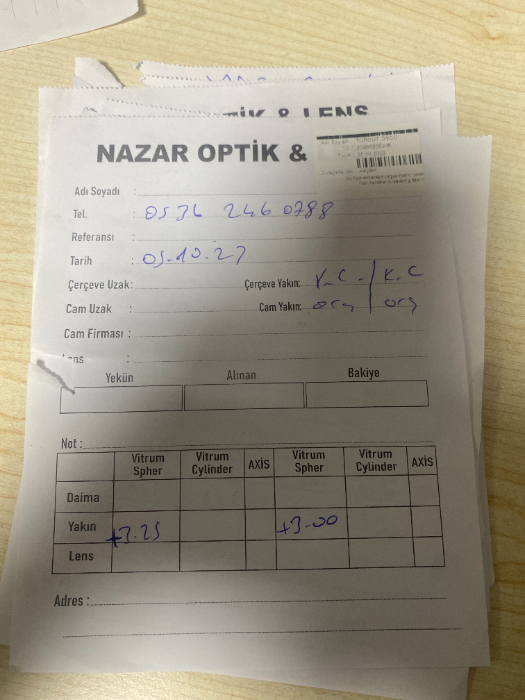 TİK & LENS
NAZAR OPTİK &
Adı Soyadı :
Tel. : 0536 246 0788
Referansı :
Tarih : 05.10.23
Çerçeve Uzak: Çerçeve Yakın: K.C / K.C
Cam Uzak : Cam Yakın: org / org
Cam Firması :
ens :
Yekün Alınan Bakiye
Not :
Vitrum Spher Vitrum Cylinder AXİS Vitrum Spher Vitrum Cylinder AXİS
Daima
Yakın +3.25 +3.00
Lens
Adres :